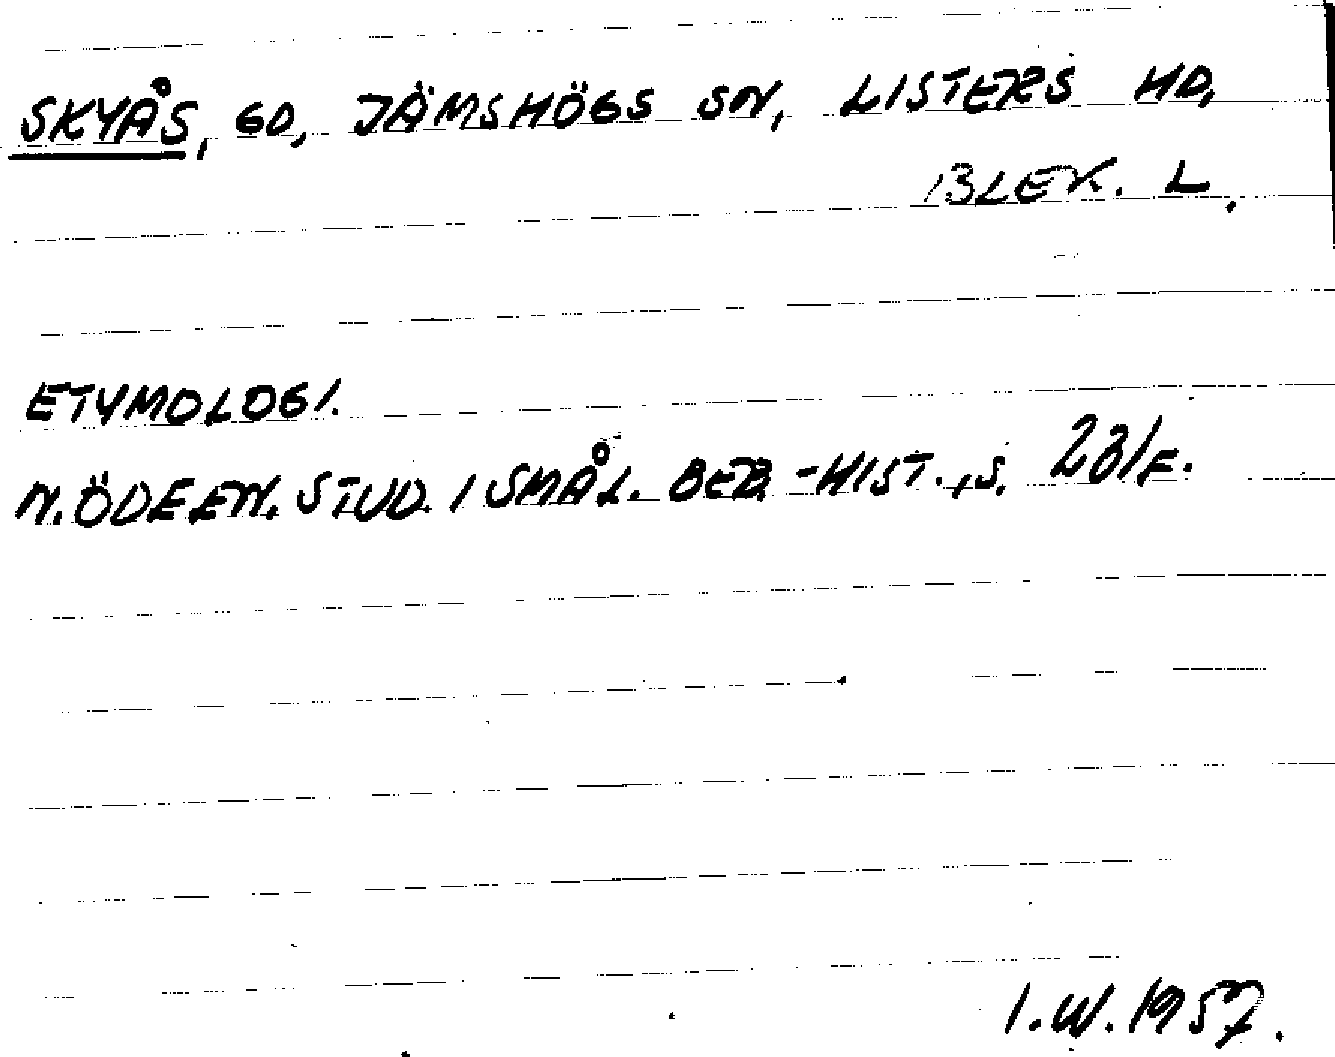 SKYÅS, GD, JÄMSHÖGS SN, LISTERS HD,
BLEK. L.
ETYMOLOGI.
N. ÖDEEN. STUD. I SMÅL. BEB.-HIST., S.
I.W. 1957.